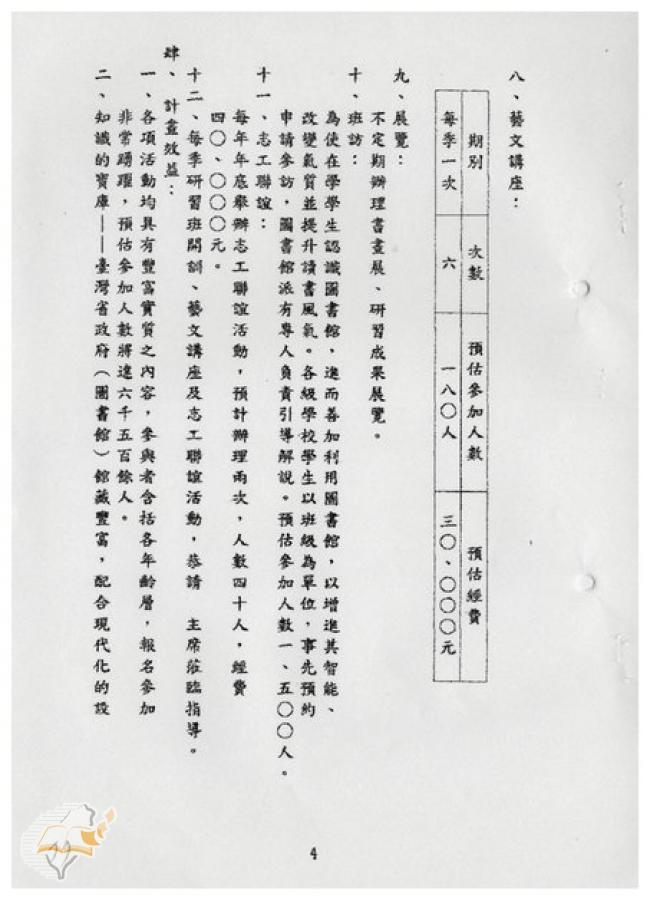 八、藝文講座：
期別 次數 預估參加人數 預估經費
每季一次 六 一八〇人 三〇、〇〇〇元
九、展覽：
不定期辦理書畫展、研習成果展覽。
十、班訪：
為使在學學生認識圖書館，進而善加利用圖書館，以增進其智能、
改變氣質並提升讀書風氣。各級學校學生以班級為單位，事先預約
申請參訪，圖書館派有專人負責引導解說。預估參加人數一、五〇〇人。
十一、志工聯誼：
每年年底舉辦志工聯誼活動，預計辦理兩次，人數四十人，經費
四〇、〇〇〇元。
十二、每季研習班開訓、藝文講座及志工聯誼活動，恭請　主席蒞臨指導。
肆、計畫效益：
一、各項活動均具有豐富實質之內容，參與者含括各年齡層，報名參加
非常踴躍，預估參加人數將達六千五百餘人。
二、知識的寶庫——臺灣省政府（圖書館）館藏豐富，配合現代化的設
4